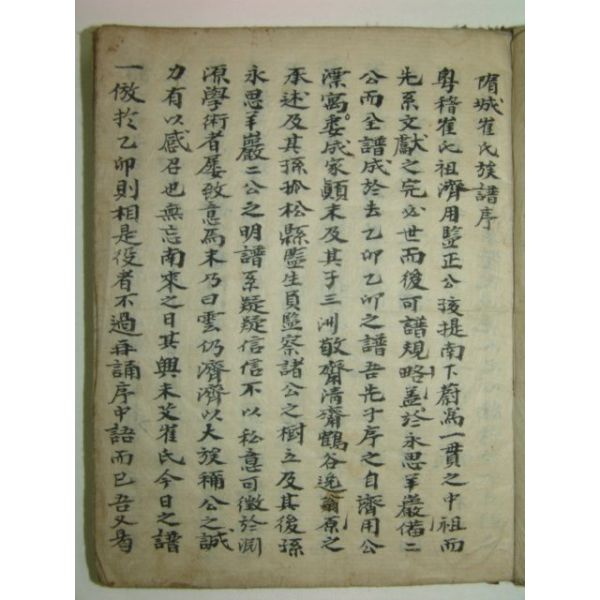 隋城崔氏族譜序
粤稽崔氏祖濟用監正公孩提南下蔚爲一貫之中祖而
先系文獻之完必世而後可譜規略盖於永思羊巖備二
公而全譜成於去乙卯乙卯之譜吾先子序之自濟用公
漂寓委成家顚末及其子三洲敬齋清齋鶴谷逸翁原之
承述及其孫孤松縣監生員監察諸公之樹立及其後孫
永思羊巖二公之明譜系疑疑信信不以私意可徵於淵
源學術者屡致意焉末乃曰雲仍濟濟以大族稱公之誠
力有以感召也無忘南來之日其興未艾崔氏今日之譜
一倣於乙卯則相是役者不過再誦序中語而已吾又爲